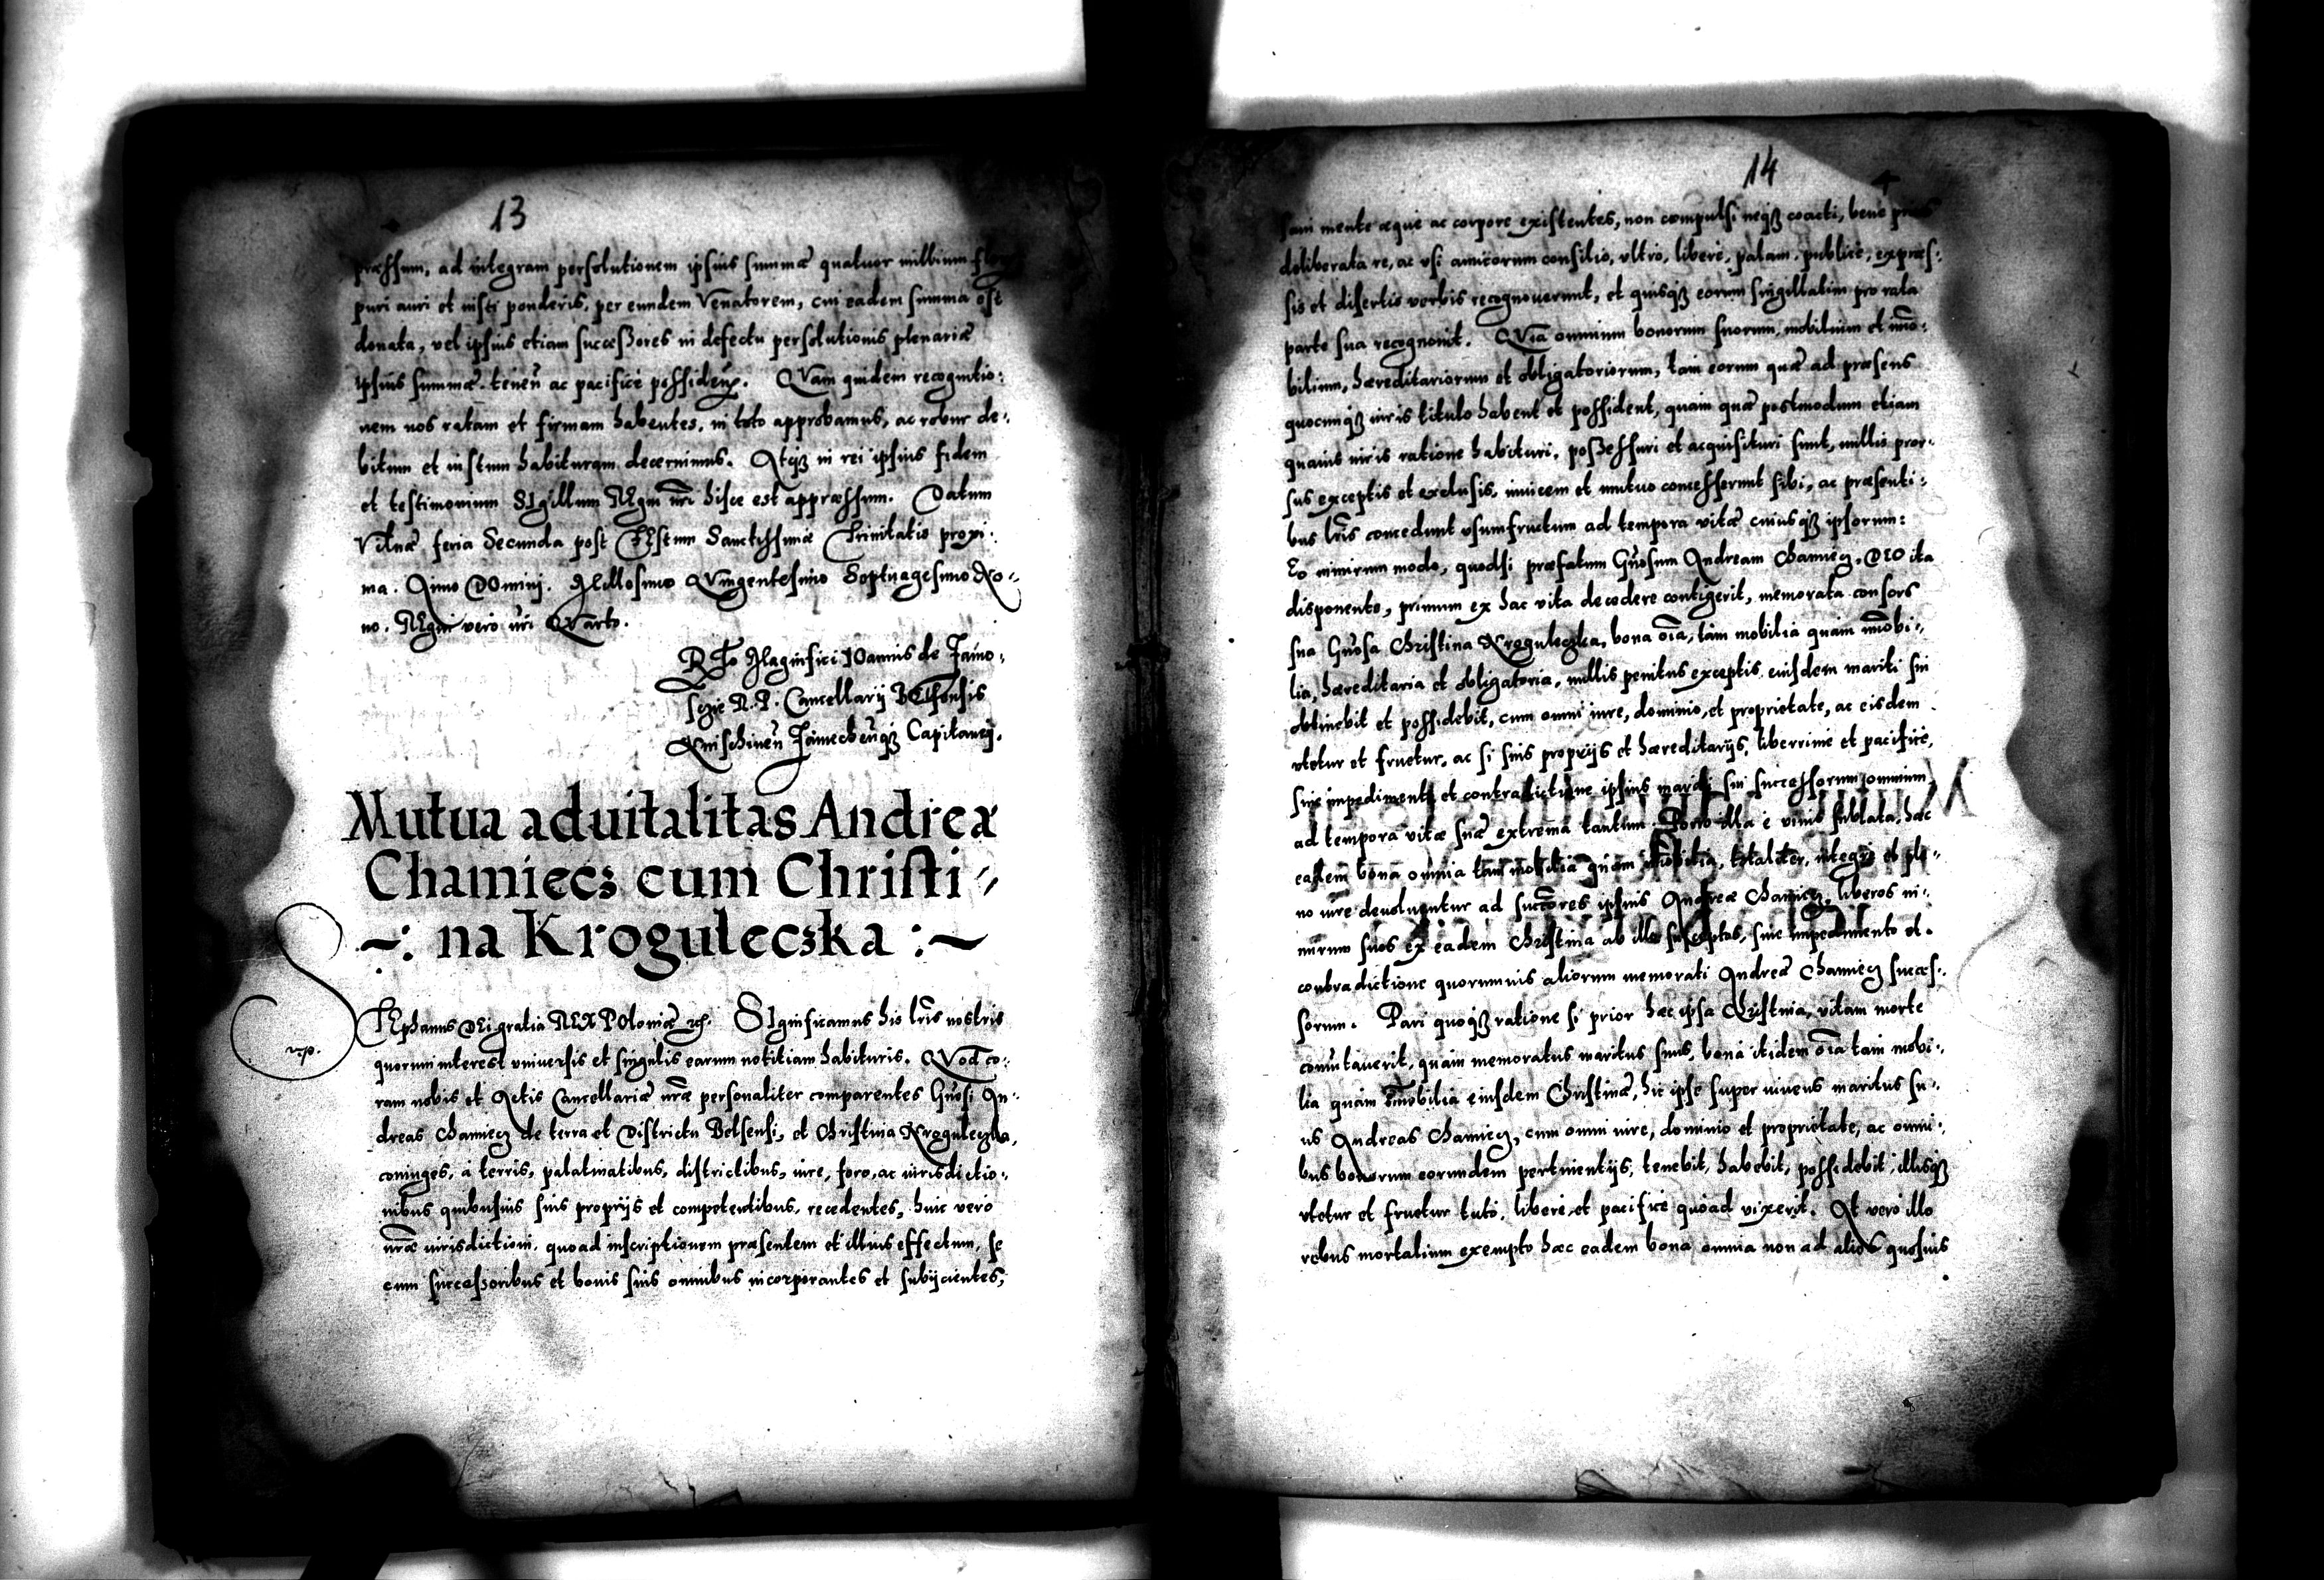 13
præssum, ad integram persolutionem ipsius summæ quatuor millium
puri auri et iusti ponderis, per eundem Venatorem, cui eadem summa est
donata, vel ipsius etiam successores in defectu persolutionis plenariæ
ipsius summæ. teneñ ac pacificè possideñ. QVam quidem recognitio:
nem nos ratam et firmam habentes, in toto approbamus, ac robur de:
bitum et iustum habituram decernimus. Atqꝫ in rei ipsius fidem
et testimonium SIgillum REgni ñri hisce est appræssum. Datum
Vilnæ feria Secunda post FEstum Sanctissimæ Trinitatis proxi:
ma. Anno DOmini. Millesimo QVingentesimo Septuagesimo No:
no. REgni vero ñri QVarto.
Rᵗᵒ Magnifici IOannis de Zamo:
scie R. P. Cancellarij BElsensis
Knischineñ Zamecheñqꝫ Capitanej.
Mutua aduitalitas Andreæ
Chamiecz cum Christi
~: na Kroguleczka :~
STEphanus DEi gratia REX POloniæ rcp. SIgnificamus his lr̃is nostris
quorum interest vniuersis et singulis earum notitiam habituris. QVod co:
rcp.
ram nobis et Actis Cancellariæ nr̃æ personaliter comparentes Gñosi An:
dreas Chamiecz de terra et Districtu Belsensi, et Christina Kroguleczka,
coniuges, à terris, palatinatibus, districtibus, iure, foro, ac iurisdictio:
nibus quibusuis suis proprijs et competentibus, recedentes, huic verò
nr̃æ iurisdictioni, quoad inscriptionem præsentem et illius effectum, se
cum successoribus et bonis suis omnibus incorporantes et subijcientes,
14
sani mente æque ac corpore existentes, non compulsi neqꝫ coacti, bene prius
deliberata re, ac vsi amicorum consilio, vltro, liberè, palam, publicè, expræs:
sis et disertis verbis recognouerunt, et quisqꝫ eorum singillatim pro rata
parte sua recognouit. QVia omnium bonorum suorum, mobilium et im̃o:
bilium, hæreditariorum et obligatoriorum, tam eorum quæ ad præsens
quocunqꝫ iuris titulo habent et possident, quam quæ postmodum etiam
quauis iuris ratione habituri, possessuri et acquisituri sunt, nullis pror:
sus exceptis et exclusis, inuicem et mutuo concesserunt sibi, ac præsenti:
bus lr̃is concedunt vsumfructum ad tempora vitæ cuiusqꝫ ipsorum:
Eo nimirum modo, quodsi præfatum Gñosum Andream Chamiecz, DEO ita
disponente, primum ex hac vita decedere contigerit, memorata consors
sua Gñosa Christina Kroguleczka, bona oĩa, tàm mobilia quàm im̃obi:
lia, hæreditaria et obligatoria, nullis penitus exceptis eiusdem mariti sui
obtinebit et possidebit, cum omni iure, dominio, et proprietate, ac eisdem
vtetur et fruetur, ac si suis proprijs et hæreditarijs, liberrimè et pacificè,
sine impedimento et contradictione ipsius mariti sui successorum omnium
ad tempora vitæ suæ extrema tantum. Porro illa è viuis sublata, hæc
eadem bona omnia tam mobilia quàm im̃obilia, totaliter, integrè et ple:
no iure deuoluentur ad succ̃ores ipsius Andreæ Chamiecz, liberos ni:
mirum suos ex eadem Christina ab illo susceptos, sine impedimento et
contradictione quorumuis aliorum memorati Andreæ Chamiecz succes:
sorum. Pari quoqꝫ ratione si prior hæc ipsa Christina, vitam morte
com̃utauerit, quàm memoratus maritus suus, bona itidem oĩa tam mobi:
lia quàm im̃obilia eiusdem Christinæ, hic ipse super viuens maritus su:
us Andreas Chamiecz, cum omni iure, dominio et proprietate, ac omni:
bus bonorum eorundem pertinentijs, tenebit, habebit, possidebit, illisqꝫ
vtetur et fruetur tutò, liberè, et pacificè quoad vixerit. At verò illo
rebus mortalium exempto hæc eadem bona omnia non ad alios quosuis